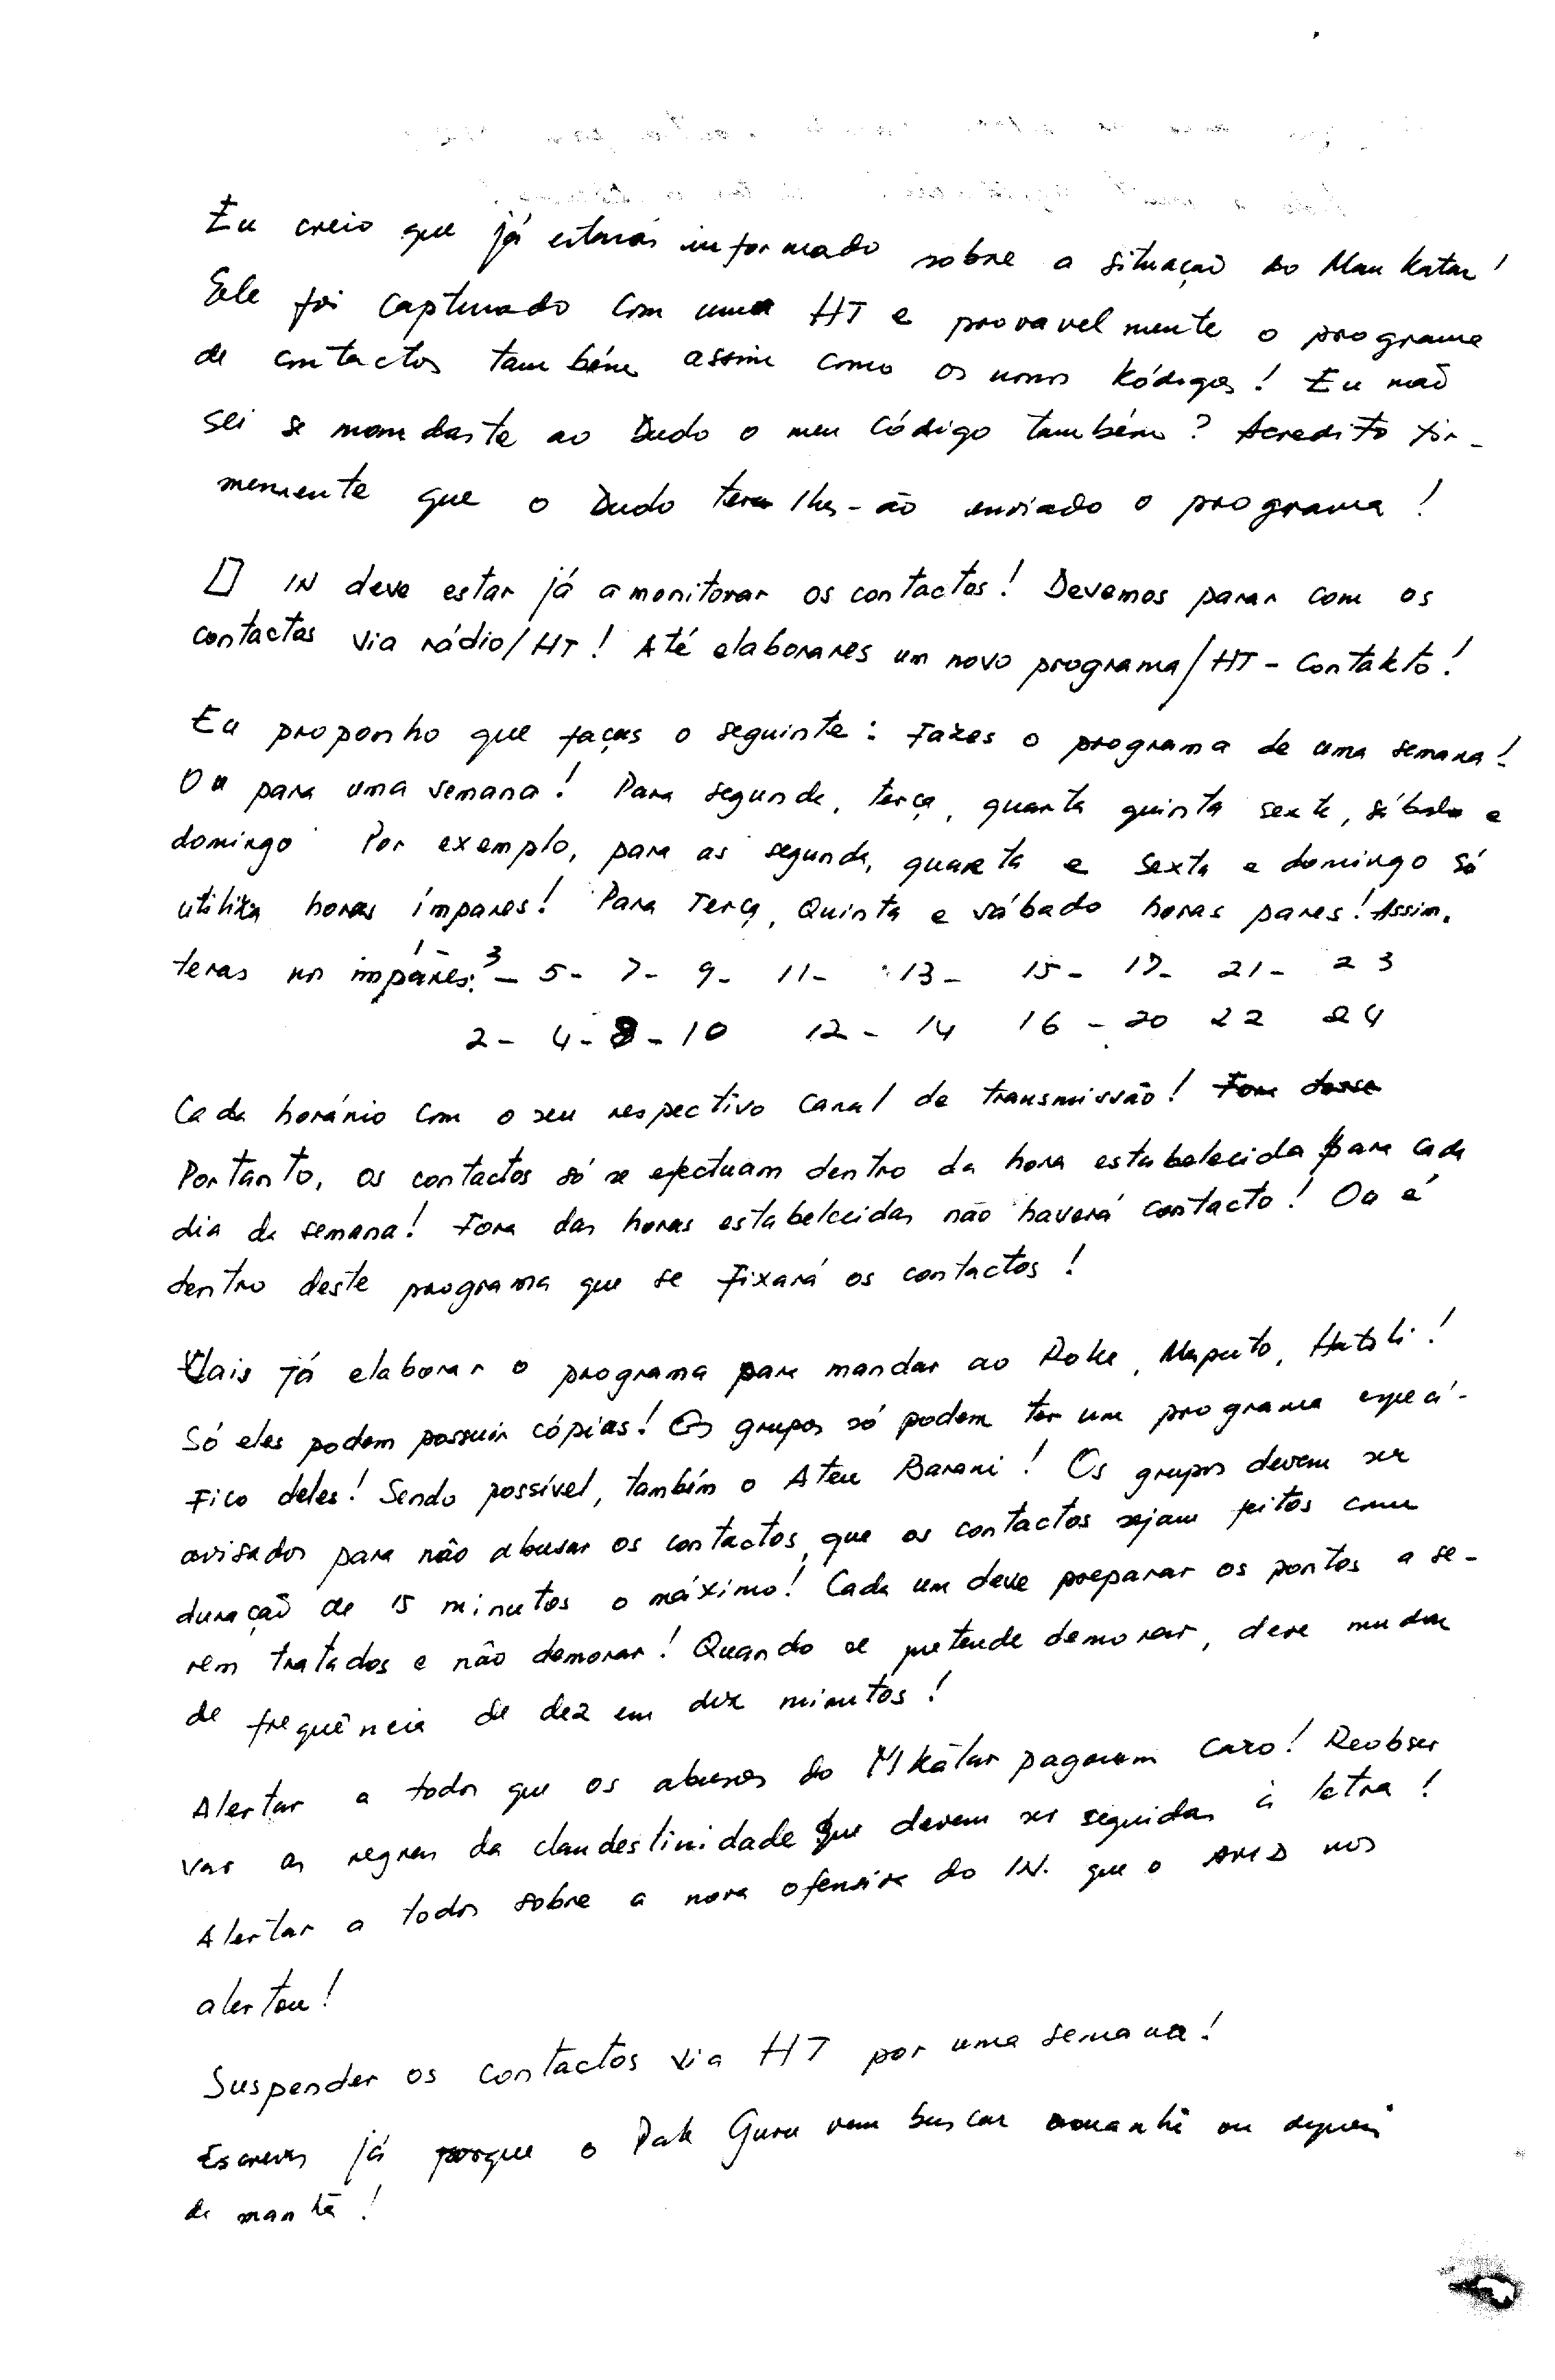 Eu creio que já estarás informado sobre a situação do Mau Katar!
Ele foi capturado com uma HT e provavelmente o programa
de contactos também assim como os nomes kódigos! Eu não
sei se mandaste ao Dudo o meu código também? Acredito fir-
memente que o Dudo lhes-ão enviado o programa!
O IN deve estar já a monitorar os contactos! Devemos parar com os
contactos via rádio/HT! Até elaborares um novo programa/HT-Contakto!
Eu proponho que faças o seguinte: Fazes o programa de uma semana!
Ou para uma semana! Para segunda, terça, quarta quinta sexta, sábado e
domingo Por exemplo, para as segunda, quarta e sexta e domingo só
utiliza horas ímpares! Para Terça, Quinta e sábado horas pares! Assim.
teras nos impares: 1 - 3 - 5 - 7 - 9 - 11 - 13 - 15 - 17 - 21 - 23
2 - 4 - 8 - 10 12 - 14 16 - 20 22 24
Cada horário com o seu respectivo canal de transmissão!
Portanto, os contactos só se efectuam dentro da hora estabelecida para cada
dia da semana! Fora das horas estabelecidas não haverá contacto! Ou é
dentro deste programa que se fixará os contactos!
Vais já elaborar o programa para mandar ao Roke, Maputo, Hatoli!
Só eles podem possuir cópias! Os grupos só podem ter um programa especí-
fico deles! Sendo possível, também o Ateu Barani! Os grupos devem ser
avisados para não abusar os contactos, que os contactos sejam feitos com
duração de 15 minutos o máximo! Cada um deve preparar os pontos a se-
rem tratados e não demorar! Quando se pretende demorar, deve mudar
de frequência de dez em dez minutos!
Alertar a todos que os abusos do M Kátar pagaram caro! Reobser
var as regras da clandestinidade que devem ser seguidas à letra!
Alertar a todos sobre a nova ofensiva do IN. que o nos
alertou!
Suspender os contactos via HT por uma semana!
Escreves já porque o Pak Guru vem buscar amanhã ou depois
de manhã!